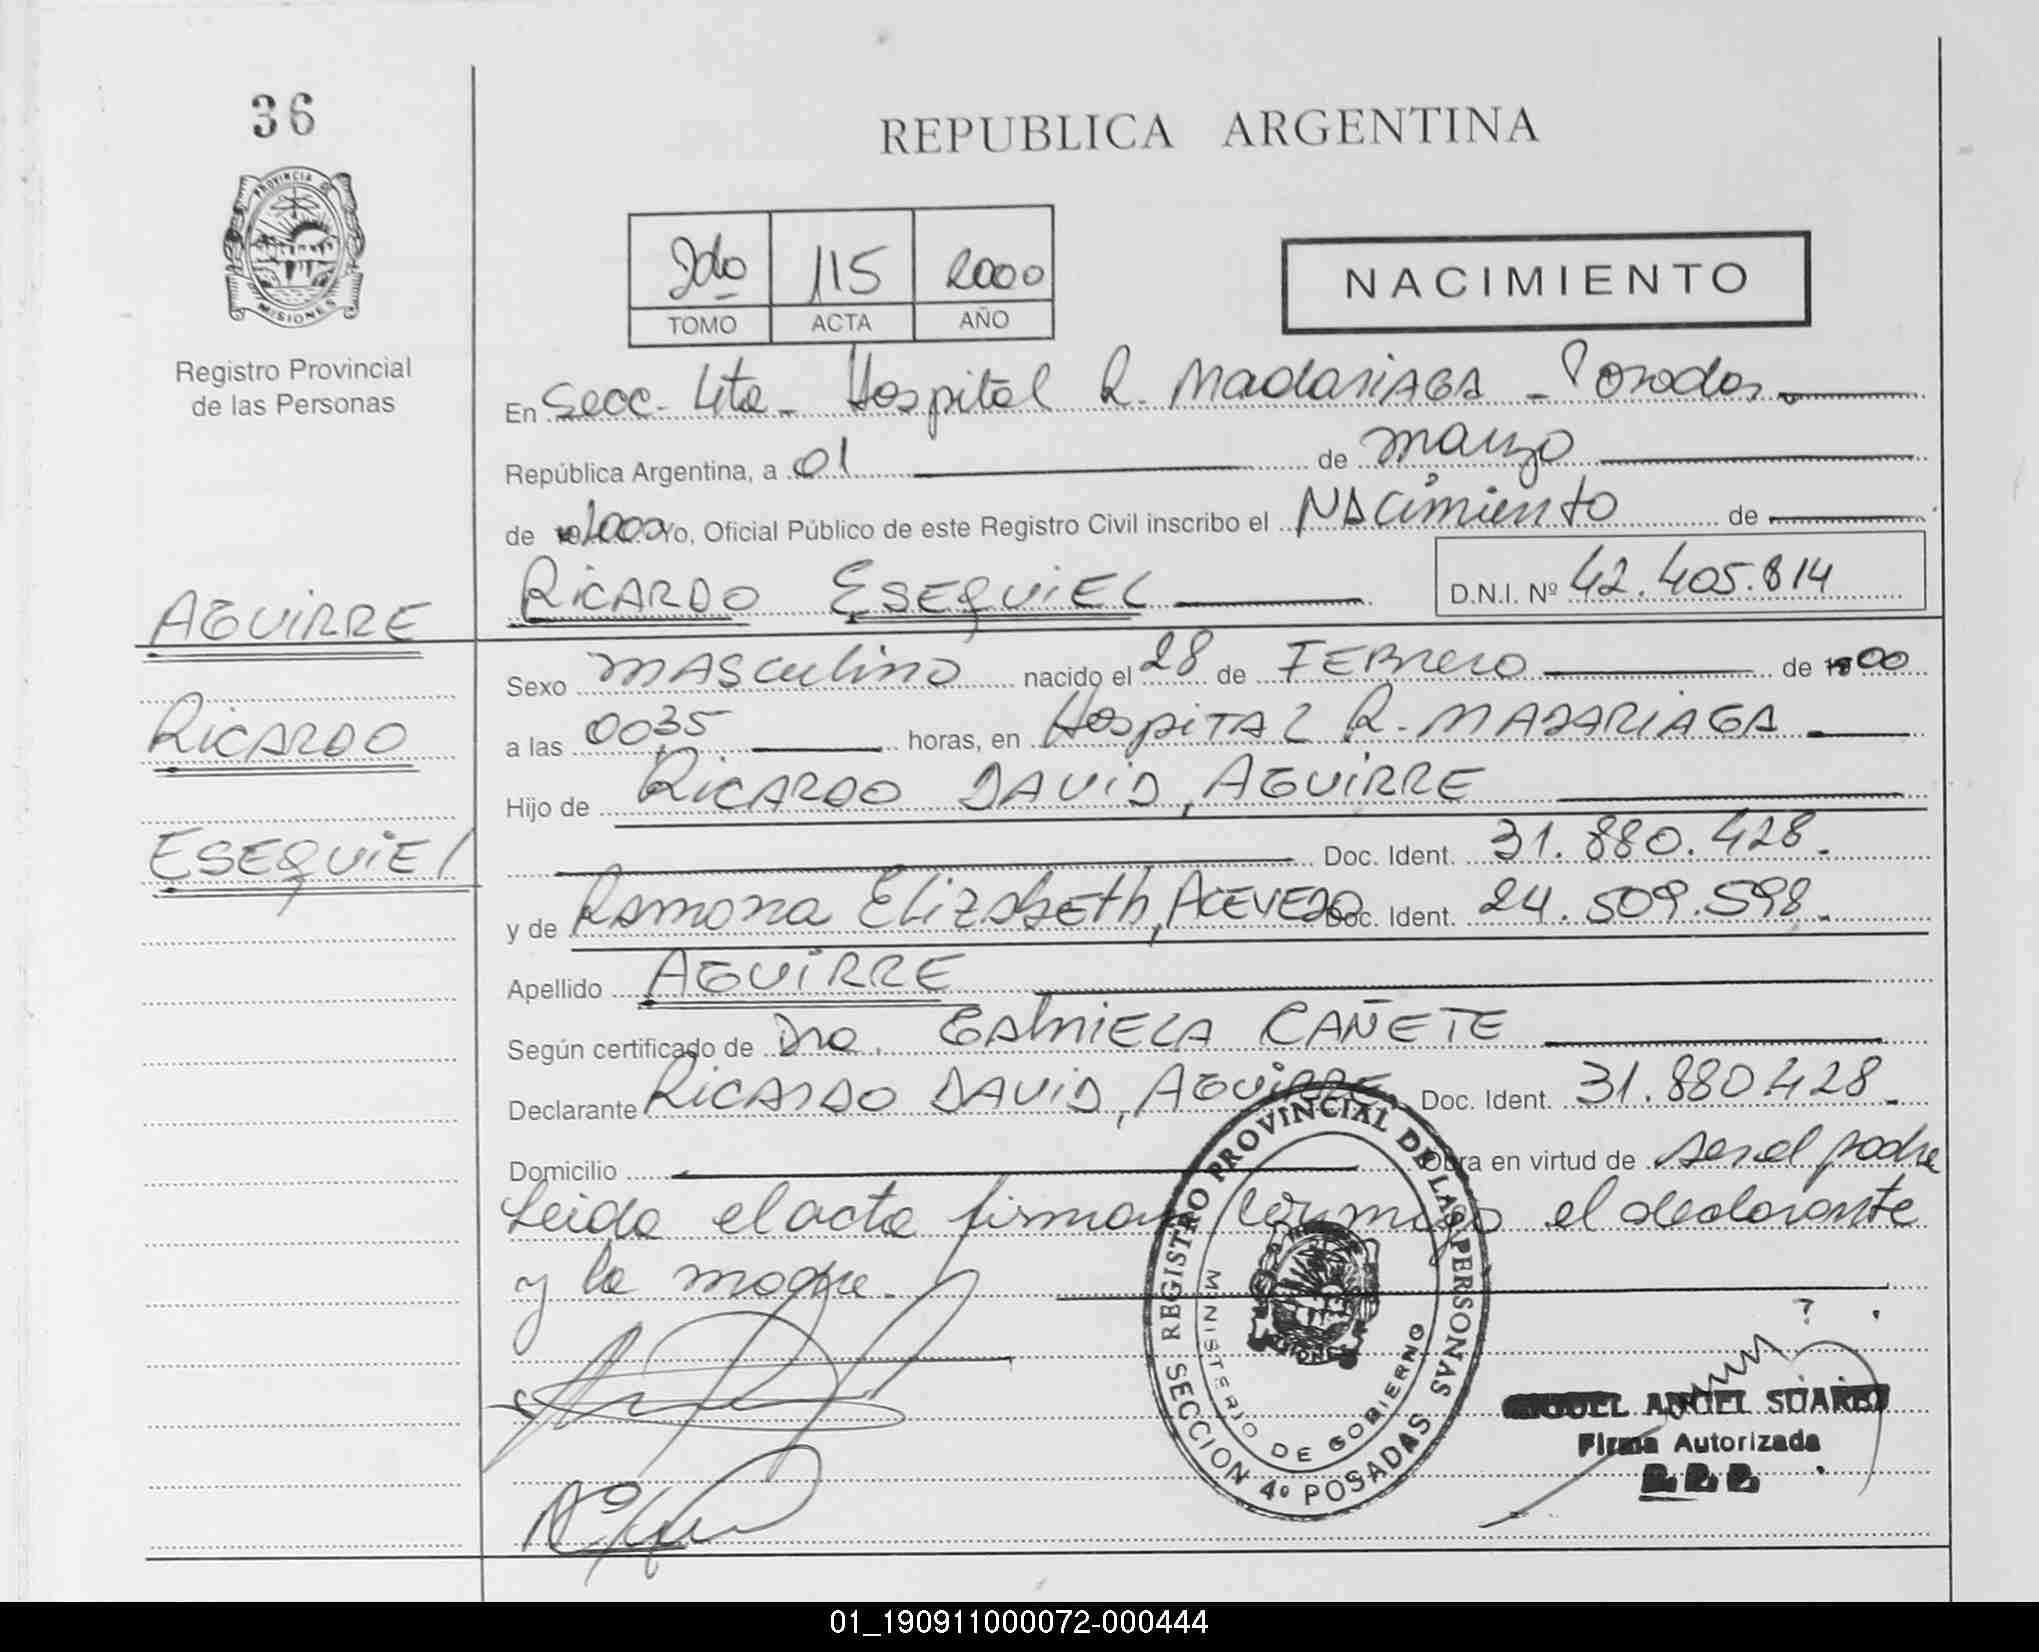 36
PROVINCIA DE
MISIONES
Registro Provincial
de las Personas
REPUBLICA ARGENTINA
2do 115 2000
TOMO ACTA AÑO
NACIMIENTO
En Secc. 4ta - Hospital R. MadariAGA - Posadas
República Argentina, a 01 de marzo
de 2000 Yo, Oficial Público de este Registro Civil inscribo el NAcimiento de
RiCARDO ESEQUiEL D.N.I. Nº 42.405.814
AGUiRRE
Sexo MASculino nacido el 28 de FEBrero de 00
RiCARDO
a las 0035 horas, en HospiTAL R. MADARiAGA
Hijo de RiCARDO DAViD, AGUiRRE
ESEQUiEl
Doc. Ident. 31.880.428.
y de Ramona ElizabEth, ACEVEDO Doc. Ident. 24.509.598.
Apellido AGUiRRE
Según certificado de Dra. GABriELA CAÑETE
Declarante RiCARDO DAViD, AGUiRRE Doc. Ident. 31.880.428.
Domicilio Obra en virtud de ser el padre
Leida el acta firman conmigo el declarante
y la madre.
REGISTRO PROVINCIAL DE LAS PERSONAS
SECCION 4º POSADAS
MINISTERIO DE GOBIERNO
MIGUEL ANGEL SUAREZ
Firma Autorizada
01_190911000072-000444